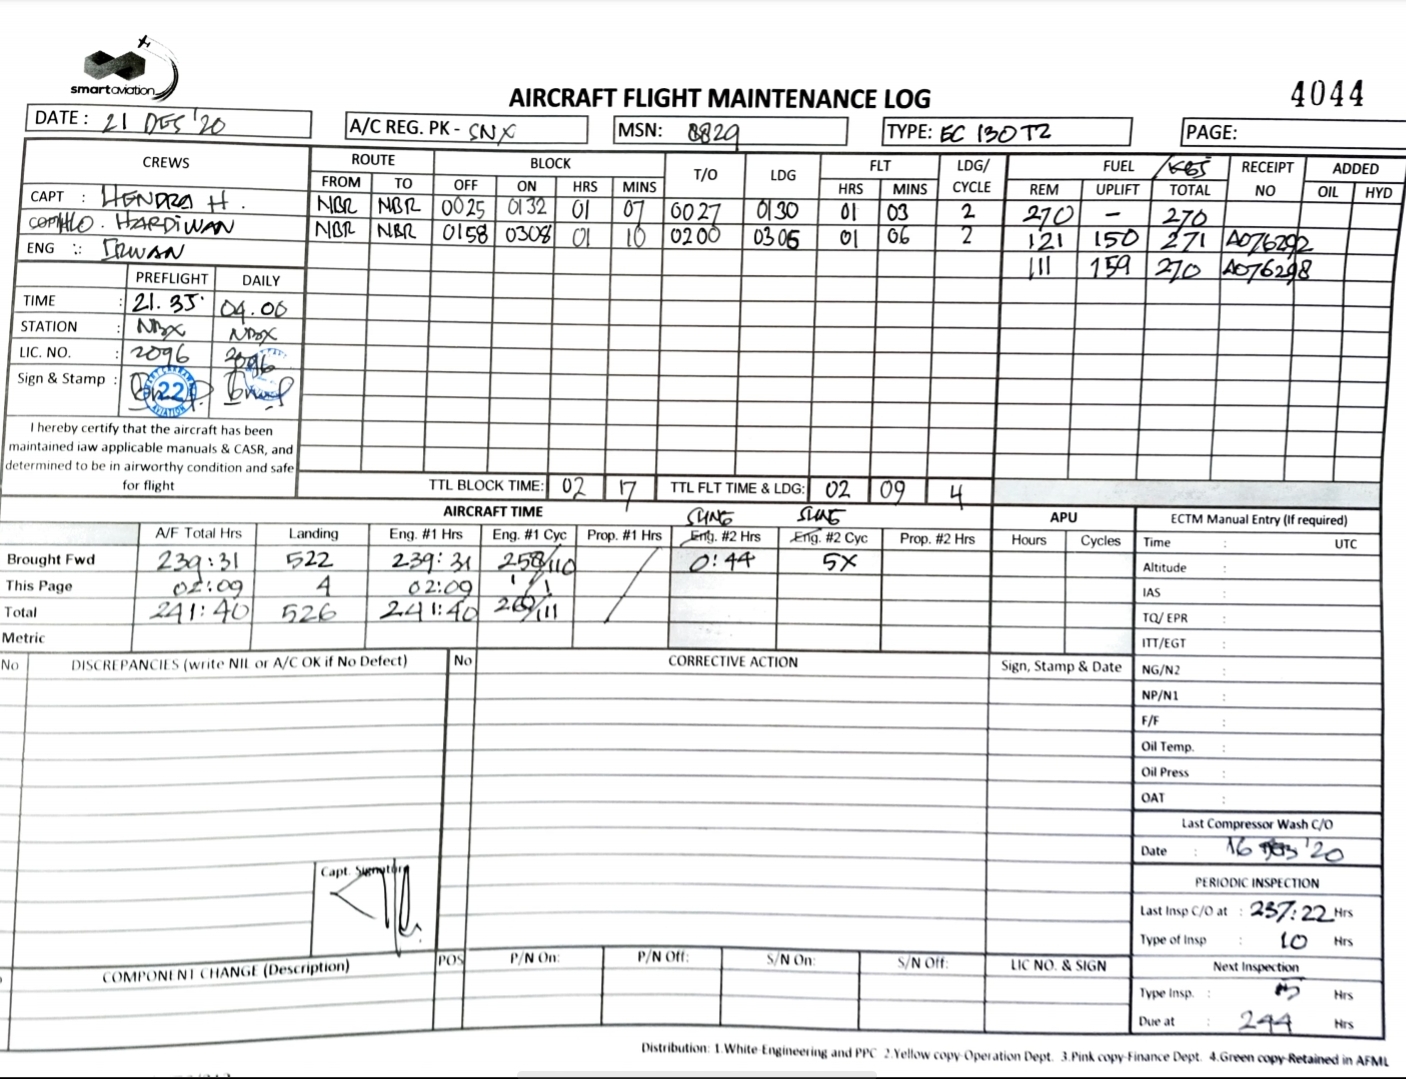 smartaviation
AIRCRAFT FLIGHT MAINTENANCE LOG
4044
DATE : 21 DES '20
A/C REG. PK - SNX
MSN: 8829
TYPE: EC 130T2
PAGE:
CREWS ROUTE BLOCK T/O LDG FLT LDG/ CYCLE FUEL RECEIPT NO ADDED
FROM TO OFF ON HRS MINS HRS MINS REM UPLIFT TOTAL OIL HYD
CAPT : HENDRA H. NBR NBR 0025 0132 01 07 0027 0130 01 03 2 270 - 270
HARDIWAN NBR NBR 0158 0308 01 10 0200 0306 01 06 2 121 150 271 A076292
ENG : IRWAN 111 159 270 A076298
PREFLIGHT DAILY
TIME : 21.35 04.00
STATION :
LIC. NO. : 2096 2096
Sign & Stamp : 22 AVIATION
I hereby certify that the aircraft has been
maintained iaw applicable manuals & CASR, and
determined to be in airworthy condition and safe
for flight
TTL BLOCK TIME: 02 17 TTL FLT TIME & LDG: 02 09 4
AIRCRAFT TIME APU ECTM Manual Entry (If required)
SLING SLING
A/F Total Hrs Landing Eng. #1 Hrs Eng. #1 Cyc Prop. #1 Hrs Eng. #2 Hrs Eng. #2 Cyc Prop. #2 Hrs Hours Cycles Time : UTC
Brought Fwd 239:31 522 239:31 258/110 0:44 5X
Altitude :
This Page 02:09 4 02:09
IAS :
Total 241:40 526 241:40
TQ/ EPR :
Metric
ITT/EGT :
No DISCREPANCIES (write NIL or A/C OK if No Defect) No CORRECTIVE ACTION Sign, Stamp & Date
NG/N2 :
NP/N1 :
F/F :
Oil Temp. :
Oil Press :
OAT :
Last Compressor Wash C/O
Date : 16 '20
Capt. Signature
PERIODIC INSPECTION
Last Insp C/O at : 237:22 Hrs
Type of Insp : 10 Hrs
COMPONENT CHANGE (Description) POS P/N On: P/N Off: S/N On: S/N Off: LIC NO. & SIGN
Next Inspection
Type Insp. : Hrs
Due at : 244 Hrs
Distribution: 1.White-Engineering and PPC 2.Yellow copy-Operation Dept. 3.Pink copy-Finance Dept. 4.Green copy-Retained in AFML